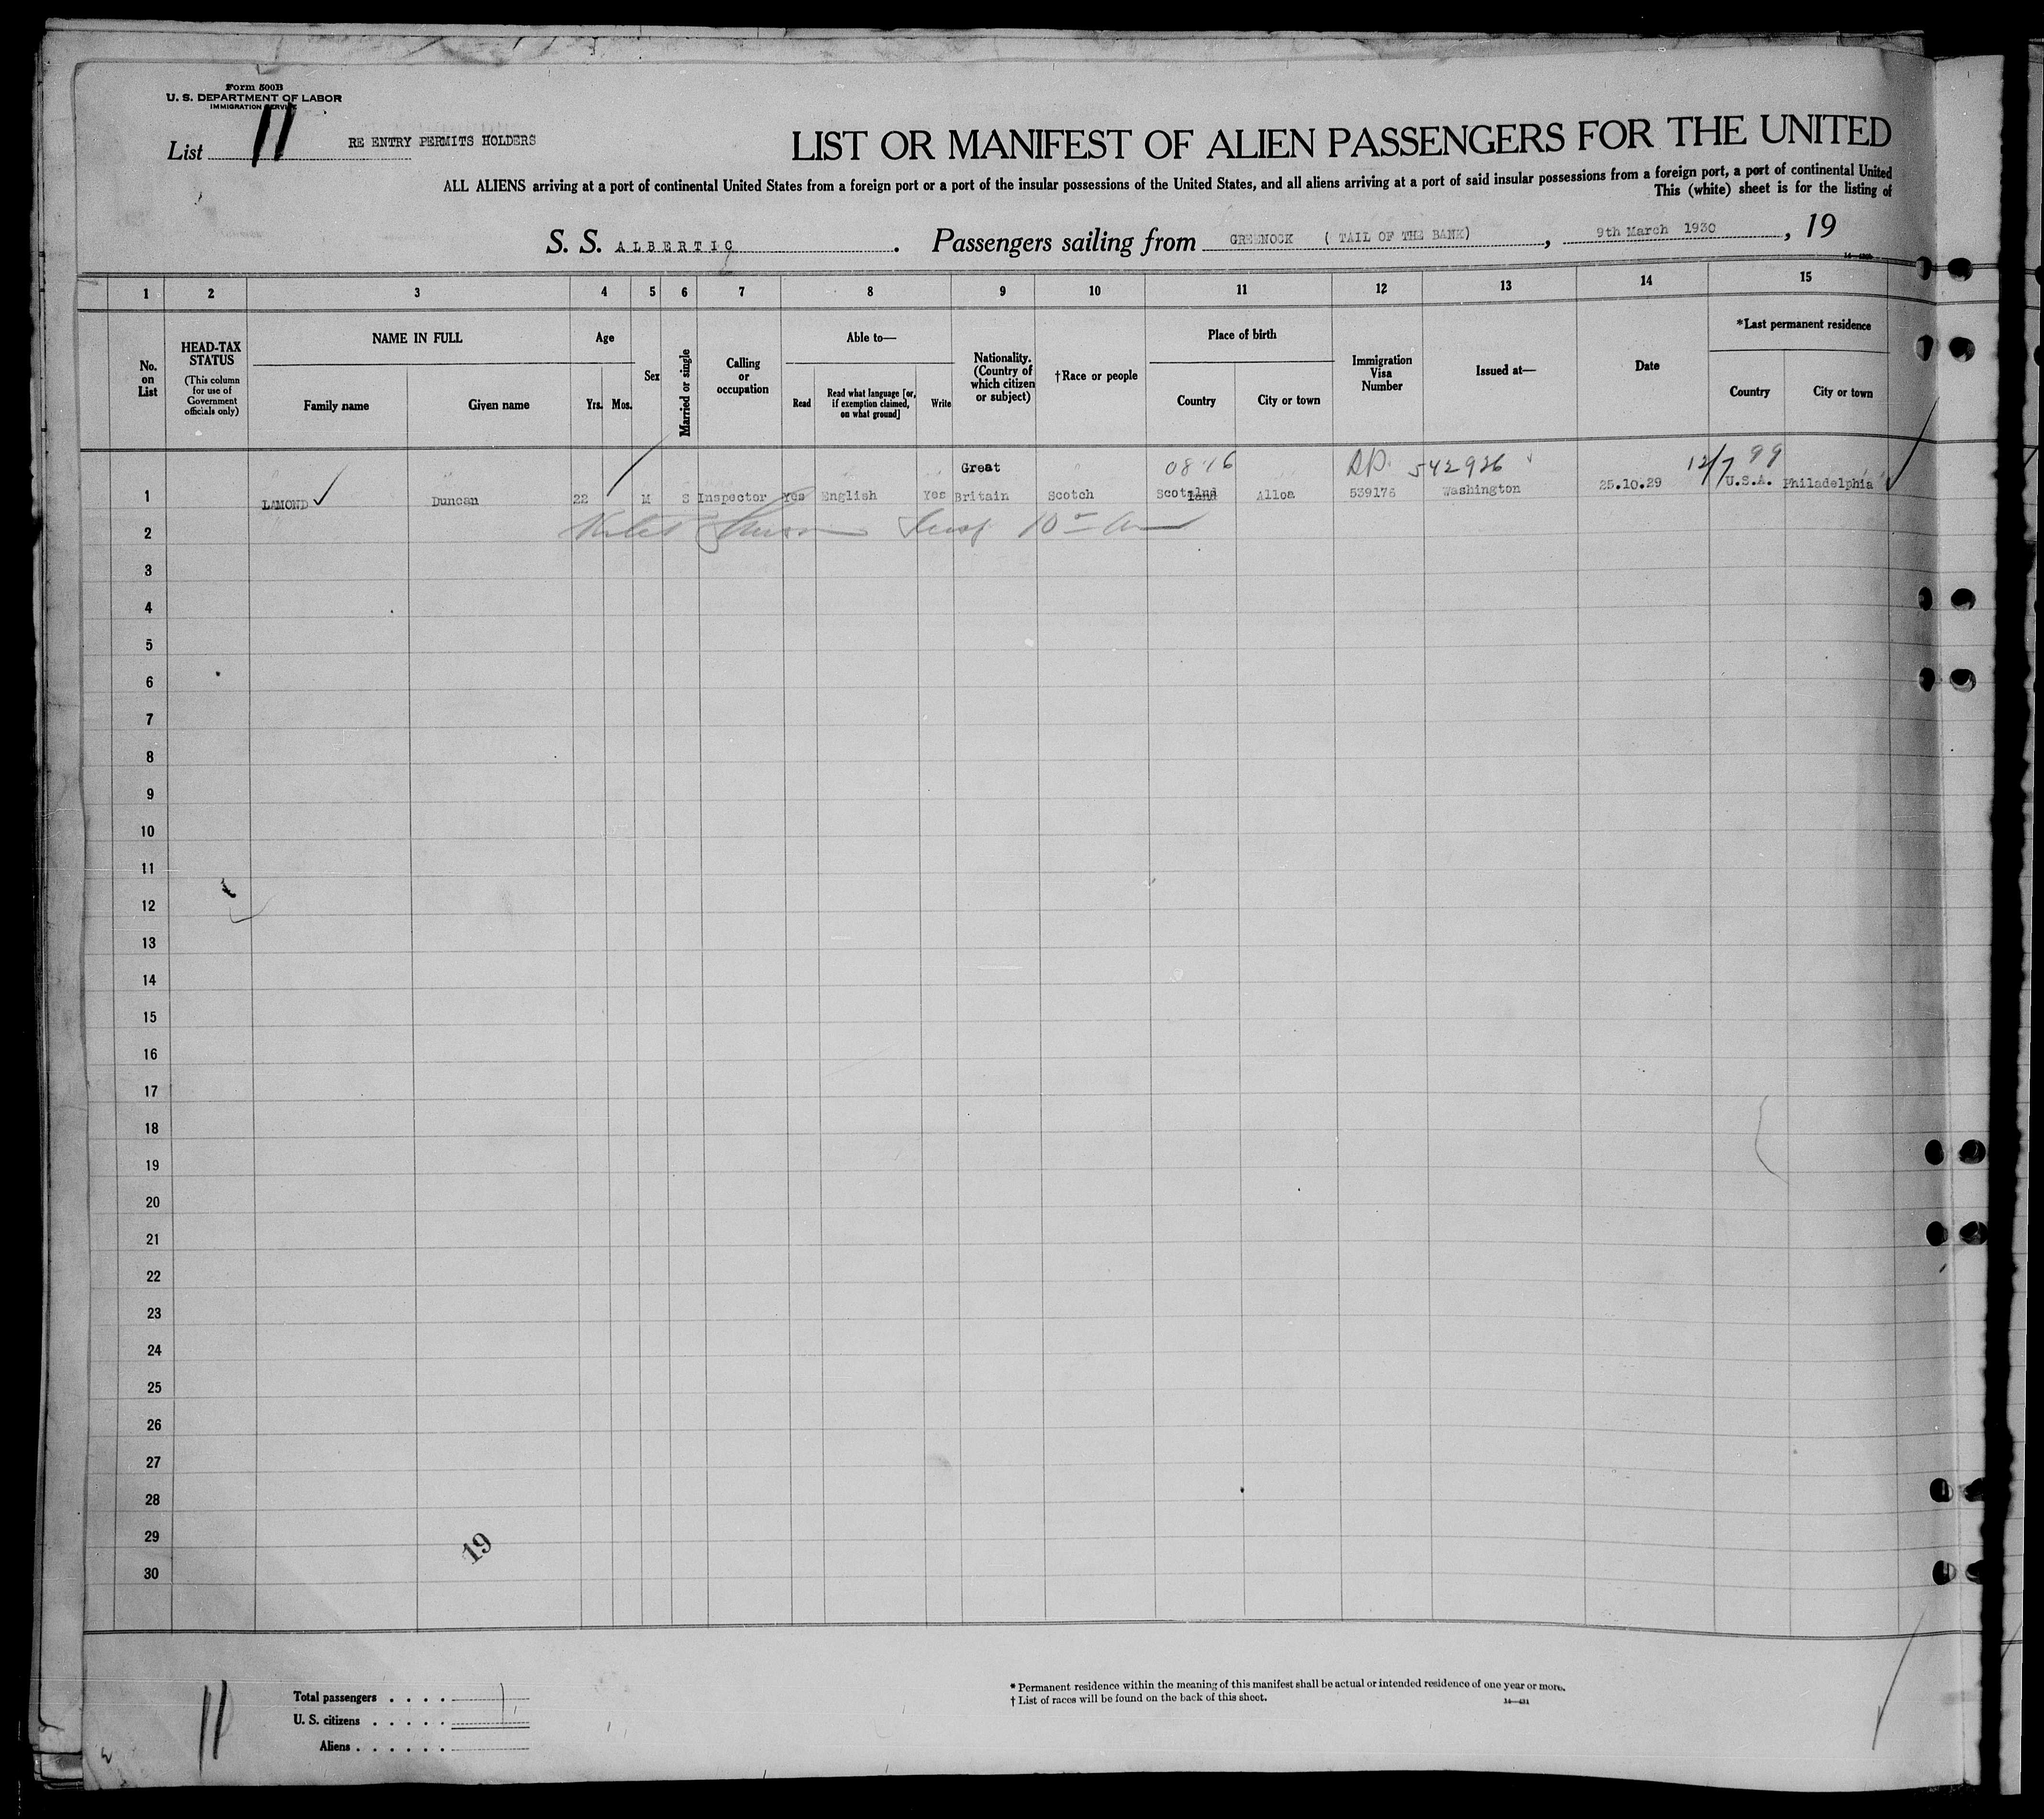 Form 500B
U. S. DEPARTMENT OF LABOR
IMMIGRATION SERVICE
List 11 RE ENTRY PERMITS HOLDERS
LIST OR MANIFEST OF ALIEN PASSENGERS FOR THE UNITED
ALL ALIENS arriving at a port of continental United States from a foreign port or a port of the insular possessions of the United States, and all aliens arriving at a port of said insular possessions from a foreign port, a port of continental United
This (white) sheet is for the listing of
S. S. ALBERTIC. Passengers sailing from GREENOCK ( TAIL OF THE BANK), 9th March 1930, 19
1 2 3 4 5 6 7 8 9 10 11 12 13 14 15
No. on List
HEAD-TAX STATUS (This column for use of Government officials only)
NAME IN FULL
Family name Given name
Age
Yrs. Mos.
Sex
Married or single
Calling or occupation
Able to—
Read Read what language [or, if exemption claimed, on what ground] Write
Nationality. (Country of which citizen or subject)
†Race or people
Place of birth
Country City or town
Immigration Visa Number
Issued at—
Date
*Last permanent residence
Country City or town
Great 0816 542926 12/7 99
1 LAMOND Duncan 22 M S Inspector Yes English Yes Britain Scotch Scotland Alloa 539176 Washington 25.10.29 U.S.A. Philadelphia
2
3
4
5
6
7
8
9
10
11
12
13
14
15
16
17
18
19
20
21
22
23
24
25
26
27
28
29
19
30
11
Total passengers . . . . 1
U. S. citizens . . . . .
Aliens . . . . . .
* Permanent residence within the meaning of this manifest shall be actual or intended residence of one year or more.
† List of races will be found on the back of this sheet.